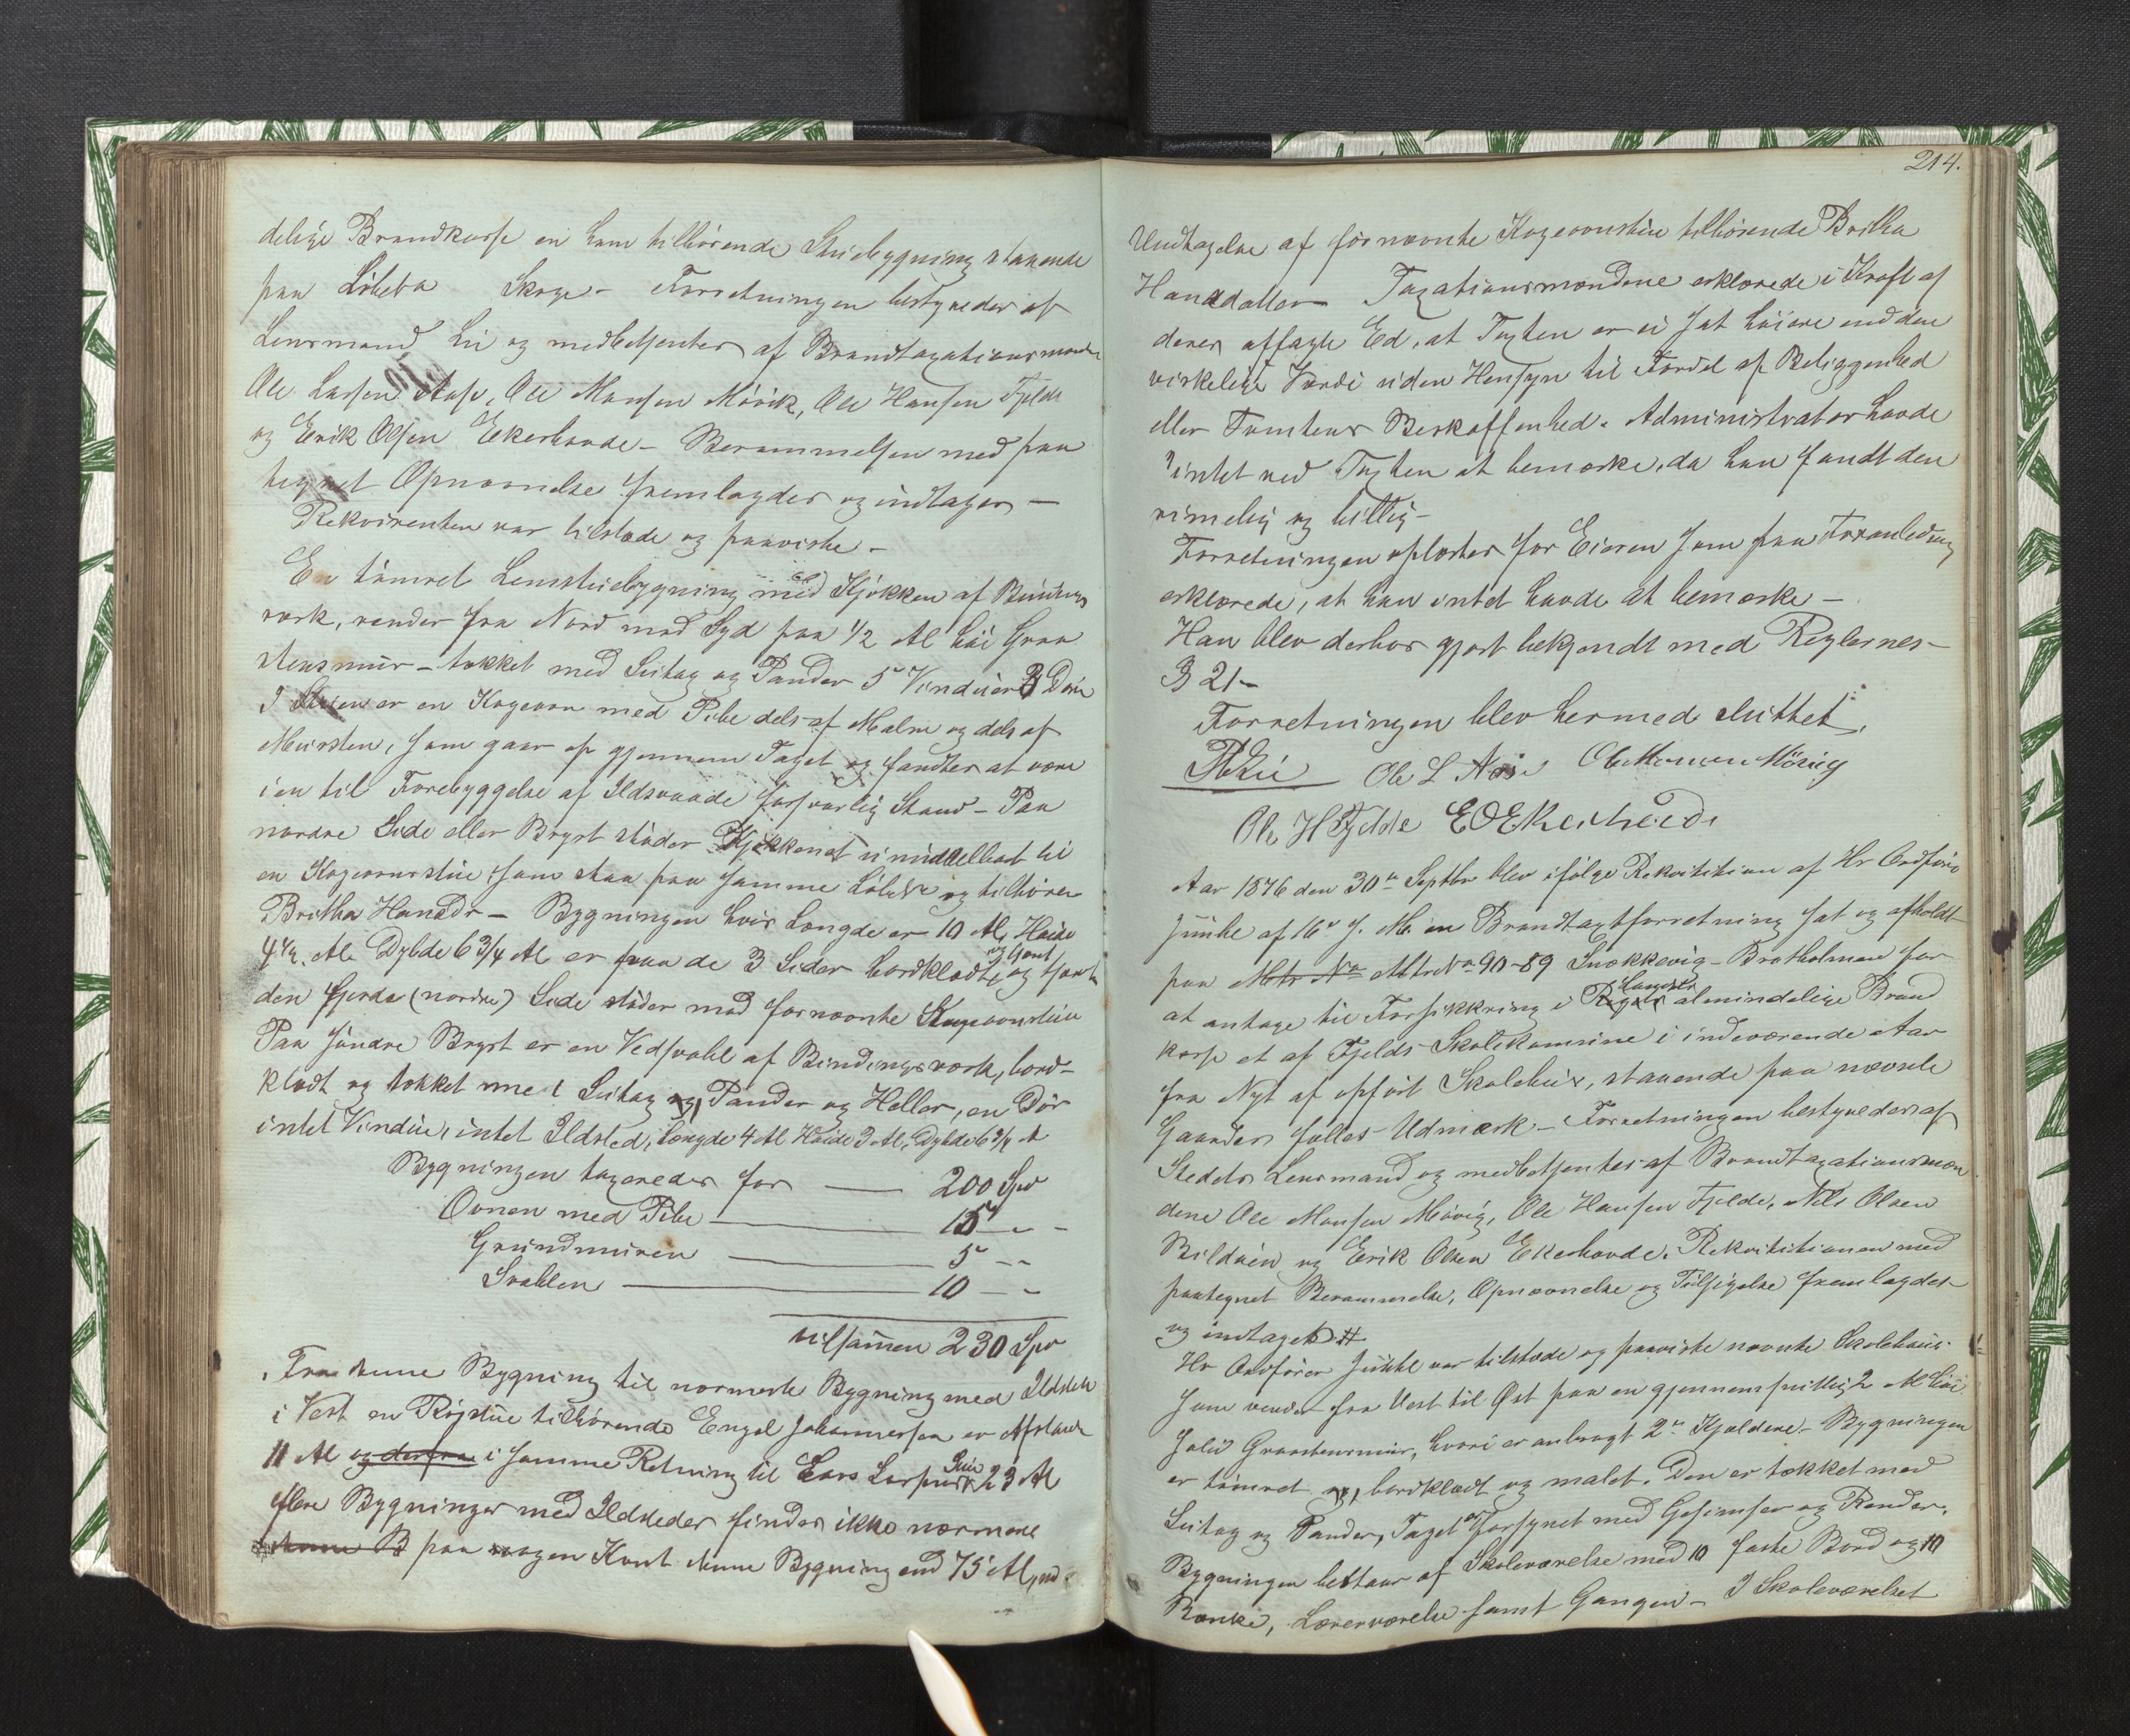 delige Brandkasse en ham tilhørende Stuebygning staaende
paa Løbeba Skoge - Forretningen bestyredes af
Lensmand Lie og medbetjentes af Brandtaxationsmænd
Ole Larsen Aase, Ole Monsen Møvik, Ole Hansen Fjelde
og Erik Olsen Ekerhovde - Berammelsen med paa
tegnet Opnævnelse fremlagdes og indtages -
Rekvirenten var tilstede og paaviste -
En tømret Lemstuebygning med Kjøkken af Bindings
værk, vender fra Nord mod Syd paa 1/2 Al høi Graa
stensmuur - tækket med Sutag og Pander 5 Vinduer 3 Døre
I Stuen er en Kogeovn med Pibe dels af Malm og dels af
Muursten, som gaar op gjennem Taget og fandtes at være
i en til Forebyggelse af Ildsvaade forsvarlig Stand - Paa
nordre Side eller Bryst støder Kjøkkenet umiddelbart til
en Kogeovnstue som staa paa samme Løbeba og tilhører
Britha Hansdr - Bygningen hvis Længde er 10 Al, Høide
4 1/2 Al. Dybde 6 3/4 Al er paa de 3 Sider bordklædt og tjæret
den fjerde (nordre) Side støder mod fornævnte Kogeovnstue
Paa søndre Bryst er en Vedsvahl af Bindingsværk, bord-
klædt og tækket med Sutag og Pander og Heller, en Dør
intet Vindue, intet Ildsted, længde 4 Al Høide 3 Al, Dybde 6 3/4 Al
Bygningen taxeredes for — 200 Spd
Ovnen med Pibe — 15 - -
Grundmuren — 5 - -
Svahlen — 10 - -
tilsammen 230 Spd
Fra denne Bygning til nærmeste Bygning med Ildsted
i Vest en Røgstue tilhørende Engel Johannessen er Afstand
11 Al og derfra i samme Retning til Lars Larsens Stue 23 Al
flere Bygninger med Ildsteder findes ikke nærmere
denne B paa nogen Kant denne Bygning end 75 Al, med
214.
Undtagelse af førnævnte Kogeovnstue tilhørende Britha
Hansdatter Taxationsmændene erklærede i Kraft af
deres aflagte Ed, at Taxten er ei sat høiere end den
virkelige Værdi uden Hensyn til Fordel af Beliggenhed
eller Tomtens Beskaffenhed. Administrator havde
intet ved Taxten at bemærke, da han fandt den
rimelig og billig -
Forretningen oplæstes for Eieren som paa Foranledning
erklærede, at han intet havde at bemærke -
Han blev derhos gjort bekjendt med Reglernes -
§ 21 -
Forretningen blev hermed sluttet.
Lie Ole L Aase Ole Monsen Møvig
Ole H Fjelde E O Ekerhovde
Aar 1876 den 30te Septbr blev ifølge Rekvisition af Hr Ordfører
Juuhl af 16de s. M. en Brandtaxtforretning sat og afholdt
paa Mtr No Mtr No 90-89 Snekkevig - Bratholmen for
at antage til Forsikkring i Rigets Landets almindelige Brand
kasse et af Fjelds Skolekomune i indeværende Aar
fra Nyt af opført Skolehuus, staaende paa nævnte
Gaardes fælles Udmark - Forretningen bestyredes af
Stedets Lensmand og medbetjentes af Brandtaxationsmæn
dene Ole Monsen Møvig, Ole Hansen Fjelde, Nils Olsen
Bildøen og Erik Olsen Ekerhovde. Rekvisitionen med
paategnet Berammelse, Opnævnelse og Tilsigelse fremlagdes
og indtages #
Hr Ordfører Juuhl var tilstede og paaviste nævnte Skolehuus
som vender fra Vest til Øst paa en gjennemsnitlig 2 Al høi
solid Graastensmuur, hvori er anbragt 2de Kjældere - Bygningen
er tømret og, bordklædt og malet. Den er tækket med
Sutag og Pander, Taget er forsynet med Gesimser og Render.
Bygningen bestaar af Skoleværelse med 10 faste Bord og 10
Bænke, Lærerværelse samt Gangen - I Skoleværelset